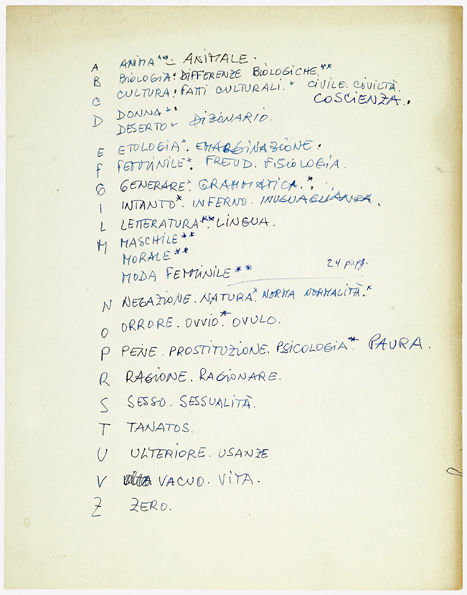 A ANIMA**. ANIMALE.
B BIOLOGIA. DIFFERENZE BIOLOGICHE.**
C CULTURA. FATTI CULTURALI.* CIVILE. CIVILTÀ.
COSCIENZA.
D DONNA*.
DESERTO. DIZIONARIO.
E ETOLOGIA*. EMARGINAZIONE.
F FEMMINILE*. FREUD. FISIOLOGIA.
G GENERARE. GRAMMATICA.*
I INTANTO*. INFERNO. INUGUAGLIANZA.
L LETTERATURA** LINGUA.
M MASCHILE**
MORALE**
MODA FEMMINILE**
24 pagg.
N NEGAZIONE. NATURA* NORMA NORMALITÀ.*
O ORRORE. OVVIO*. OVULO.
P PENE. PROSTITUZIONE. PSICOLOGIA*. PAURA.
R RAGIONE. RAGIONARE.
S SESSO. SESSUALITÀ.
T TANATOS.
U ULTERIORE. USANZE
V VACUO. VITA.
Z ZERO.